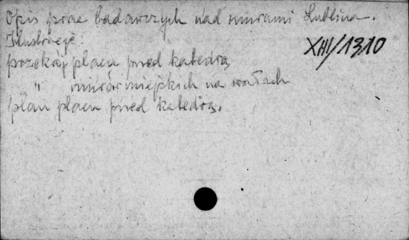 Opis prac badawczych nad murami Lublina.
Ilustracje:
XIII/1310
przekrój placu przed katedrą
" murów miejskich na wałach
plan placu przed katedrą.